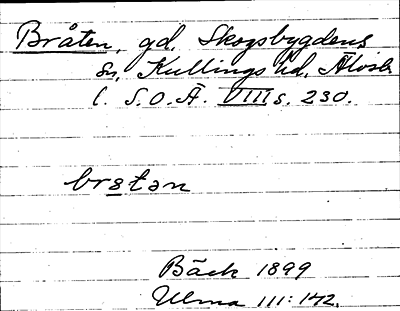 Bråten, gd, Skogsbygdens
sn, Kullings hd, Älvsb
l. S.O.Ä. VIII s. 230.
bratən
Bäck 1899
Ulma 111:142.